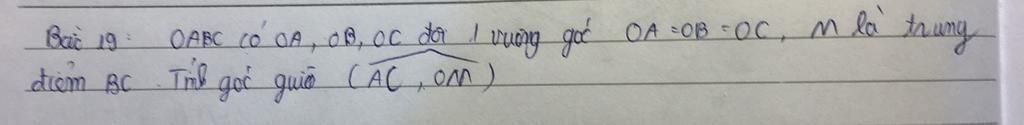 Bài 19: OABC có OA, OB, OC đôi 1 vuông góc OA = OB = OC, M là trung
điểm BC. Tính góc giữa (AC, OM)